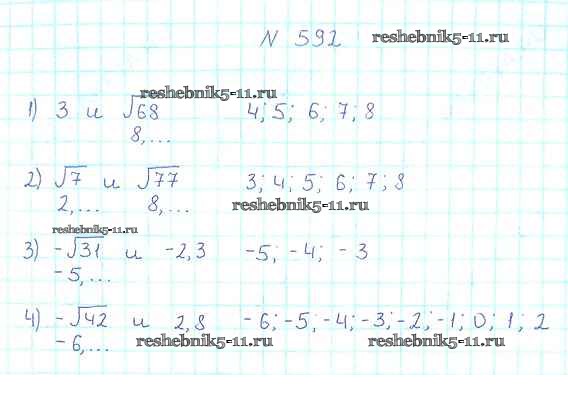 N 592 reshebnik5-11.ru
reshebnik5-11.ru
1) 3 и √68 4; 5; 6; 7; 8
8,...
2) √7 и √77 3; 4; 5; 6; 7; 8
2,... 8,... reshebnik5-11.ru
reshebnik5-11.ru
3) -√31 и -2,3 -5; -4; -3
-5,...
4) -√42 и 2,8 -6; -5; -4; -3; -2; -1; 0; 1; 2
-6,... reshebnik5-11.ru reshebnik5-11.ru